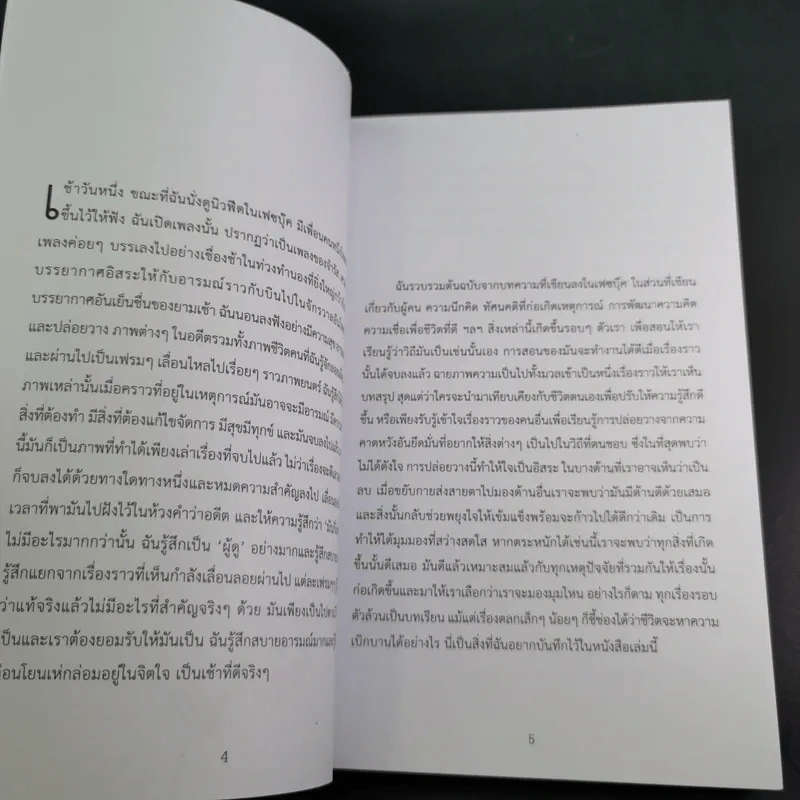 เช้าวันหนึ่ง ขณะที่ฉันนั่งดูนิวฟีดในเฟซบุ๊ค มีเพื่อนคนหนึ่ง
ขึ้นไว้ให้ฟัง ฉันเปิดเพลงนั้น ปรากฏว่าเป็นเพลงของจำรัส
เพลงค่อยๆ บรรเลงไปอย่างเชื่องช้าในท่วงทำนองที่ยิ่งใหญ่
บรรยากาศอิสระให้กับอารมณ์ราวกับบินไปในจักรวาล
บรรยากาศอันเย็นชื่นของยามเช้า ฉันนอนลงฟังอย่างมีความสุข
และปล่อยวาง ภาพต่างๆ ในอดีตรวมทั้งภาพชีวิตคนที่ฉันรู้จัก
และผ่านไปเป็นเฟรมๆ เลื่อนไหลไปเรื่อยๆ ราวภาพยนตร์ ฉันรู้สึก
ภาพเหล่านั้นเมื่อคราวที่อยู่ในเหตุการณ์มันอาจจะมีอารมณ์
สิ่งที่ต้องทำ มีสิ่งที่ต้องแก้ไขจัดการ มีสุขมีทุกข์ และมันจบลงไป
นี้มันก็เป็นภาพที่ทำได้เพียงเล่าเรื่องที่จบไปแล้ว ไม่ว่าเรื่องจะ
ก็จบลงได้ด้วยทางใดทางหนึ่งและหมดความสำคัญลงไป
เวลาที่พามันไปฝังไว้ในห้วงคำว่าอดีต และให้ความรู้สึกว่า
ไม่มีอะไรมากกว่านั้น ฉันรู้สึกเป็น ‘ผู้ดู’ อย่างมากและรู้สึก
รู้สึกแยกจากเรื่องราวที่เห็นกำลังเลื่อนลอยผ่านไป แต่ละเฟรมๆ
ว่าแท้จริงแล้วไม่มีอะไรที่สำคัญจริงๆ ด้วย มันเพียงเป็นไป
เป็นและเราต้องยอมรับให้มันเป็น ฉันรู้สึกสบายอารมณ์มาก
อ่อนโยนเห่กล่อมอยู่ในจิตใจ เป็นเช้าที่ดีจริงๆ
4
ฉันรวบรวมต้นฉบับจากบทความที่เขียนลงในเฟซบุ๊ค ในส่วนที่เขียน
เกี่ยวกับผู้คน ความนึกคิด ทัศนคติที่ก่อเกิดเหตุการณ์ การพัฒนาความคิด
ความเชื่อเพื่อชีวิตที่ดี ฯลฯ สิ่งเหล่านี้เกิดขึ้นรอบๆ ตัวเรา เพื่อสอนให้เรา
เรียนรู้ว่าวิถีมันเป็นเช่นนั้นเอง การสอนของมันจะทำงานได้ดีเมื่อเรื่องราว
นั้นได้จบลงแล้ว ฉายภาพความเป็นไปทั้งมวลเข้าเป็นหนึ่งเรื่องราวให้เราเห็น
บทสรุป สุดแต่ว่าใครจะนำมาเทียบเคียงกับชีวิตตนเองเพื่อปรับให้ความรู้สึกดี
ขึ้น หรือเพียงรับรู้เข้าใจเรื่องราวของคนอื่นเพื่อเรียนรู้การปล่อยวางจากความ
คาดหวังอันยึดมั่นที่อยากให้สิ่งต่างๆ เป็นไปในวิถีที่ตนชอบ ซึ่งในที่สุดพบว่า
ไม่ได้ดังใจ การปล่อยวางนี้ทำให้ใจเป็นอิสระ ในบางด้านที่เราอาจเห็นว่าเป็น
ลบ เมื่อขยับกายส่งสายตาไปมองด้านอื่นเราจะพบว่ามันมีด้านดีด้วยเสมอ
และสิ่งนั้นกลับช่วยพยุงใจให้เข้มแข็งพร้อมจะก้าวไปได้ดีกว่าเดิม เป็นการ
ทำให้ได้มุมมองที่สว่างสดใส หากตระหนักได้เช่นนี้เราจะพบว่าทุกสิ่งที่เกิด
ขึ้นนั้นดีเสมอ มันดีแล้วเหมาะสมแล้วกับทุกเหตุปัจจัยที่รวมกันให้เรื่องนั้น
ก่อเกิดขึ้นและมาให้เราเลือกว่าเราจะมองมุมไหน อย่างไรก็ตาม ทุกเรื่องรอบ
ตัวล้วนเป็นบทเรียน แม้แต่เรื่องตลกเล็กๆ น้อยๆ ก็ชี้ช่องได้ว่าชีวิตจะหาความ
เบิกบานได้อย่างไร นี่เป็นสิ่งที่ฉันอยากบันทึกไว้ในหนังสือเล่มนี้
5